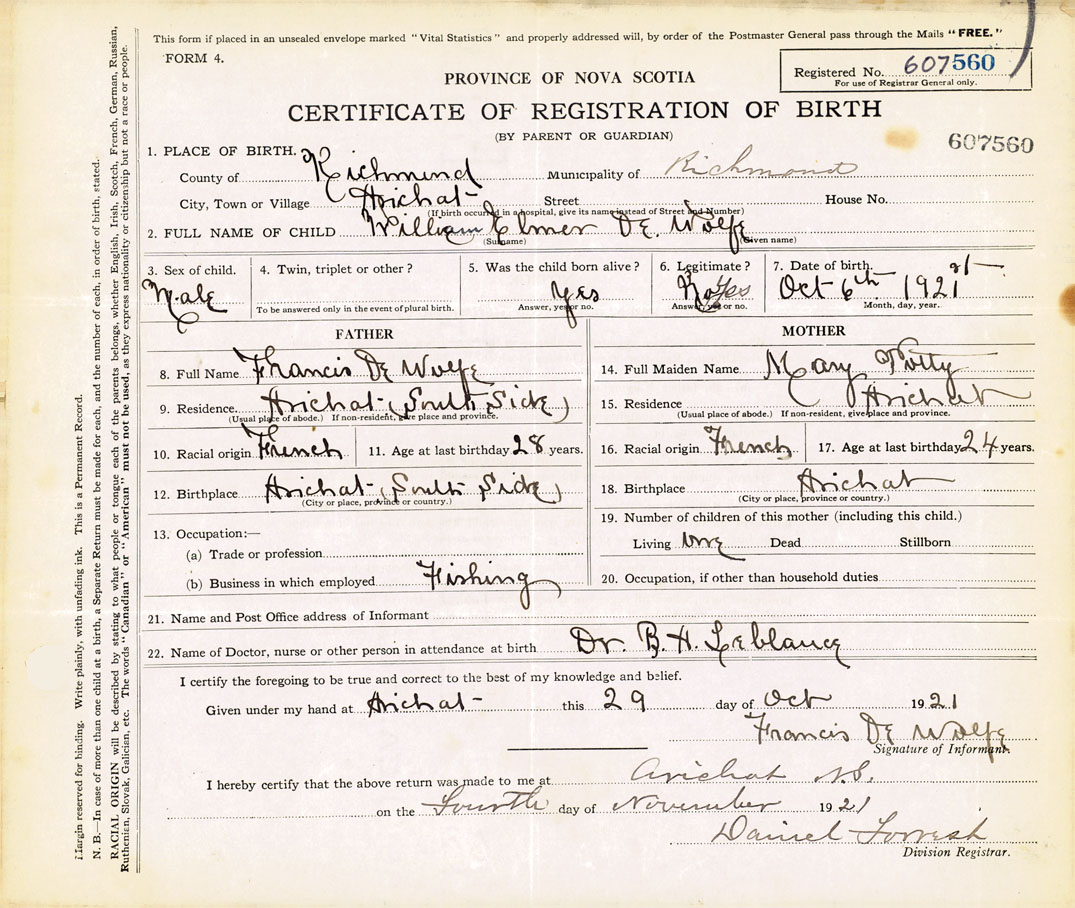 This form if placed in an unsealed envelope marked "Vital Statistics" and properly addressed will, by order of the Postmaster General pass through the Mails "FREE."
FORM 4.
Registered No. 607560
For use of Registrar General only.
PROVINCE OF NOVA SCOTIA
CERTIFICATE OF REGISTRATION OF BIRTH
(BY PARENT OR GUARDIAN)
607560
1. PLACE OF BIRTH.
County of Richmond Municipality of Richmond
City, Town or Village Arichat Street House No.
(If birth occurred in a hospital, give its name instead of Street and Number)
2. FULL NAME OF CHILD William Elmer De Wolfe
(Surname) (Given name)
3. Sex of child. 4. Twin, triplet or other? 5. Was the child born alive? 6. Legitimate? 7. Date of birth.
Male Yes No Yes Oct 6th 1921
To be answered only in the event of plural birth. Answer, yes or no. Answer, yes or no. Month, day, year.
FATHER
8. Full Name Francis De Wolfe
9. Residence. Arichat (South Side)
(Usual place of abode.) If non-resident, give place and province.
10. Racial origin French 11. Age at last birthday 28 years.
12. Birthplace Arichat (South Side)
(City or place, province or country.)
13. Occupation:—
(a) Trade or profession
(b) Business in which employed Fishing
MOTHER
14. Full Maiden Name Mary Potty
15. Residence Arichat
(Usual place of abode.) If non-resident, give place and province.
16. Racial origin French 17. Age at last birthday 24 years.
18. Birthplace Arichat
(City or place, province or country.)
19. Number of children of this mother (including this child.)
Living One Dead Stillborn
20. Occupation, if other than household duties
21. Name and Post Office address of Informant
22. Name of Doctor, nurse or other person in attendance at birth Dr. B. H. Leblance
I certify the foregoing to be true and correct to the best of my knowledge and belief.
Given under my hand at Arichat this 29 day of Oct 1921
Francis De Wolfe
Signature of Informant.
I hereby certify that the above return was made to me at Arichat N.S.
on the Fourth day of November 1921
Daniel Forrest
Division Registrar.
Margin reserved for binding. Write plainly, with unfading ink. This is a Permanent Record.
N. B.—In case of more than one child at a birth, a Separate Return must be made for each, and the number of each, in order of birth, stated.
RACIAL ORIGIN will be described by stating to what people or tongue each of the parents belongs, whether English, Irish, Scotch, French, German, Russian,
Ruthenian, Slovak, Galician, etc. The words "Canadian" or "American" must not be used, as they express nationality or citizenship but not a race or people.